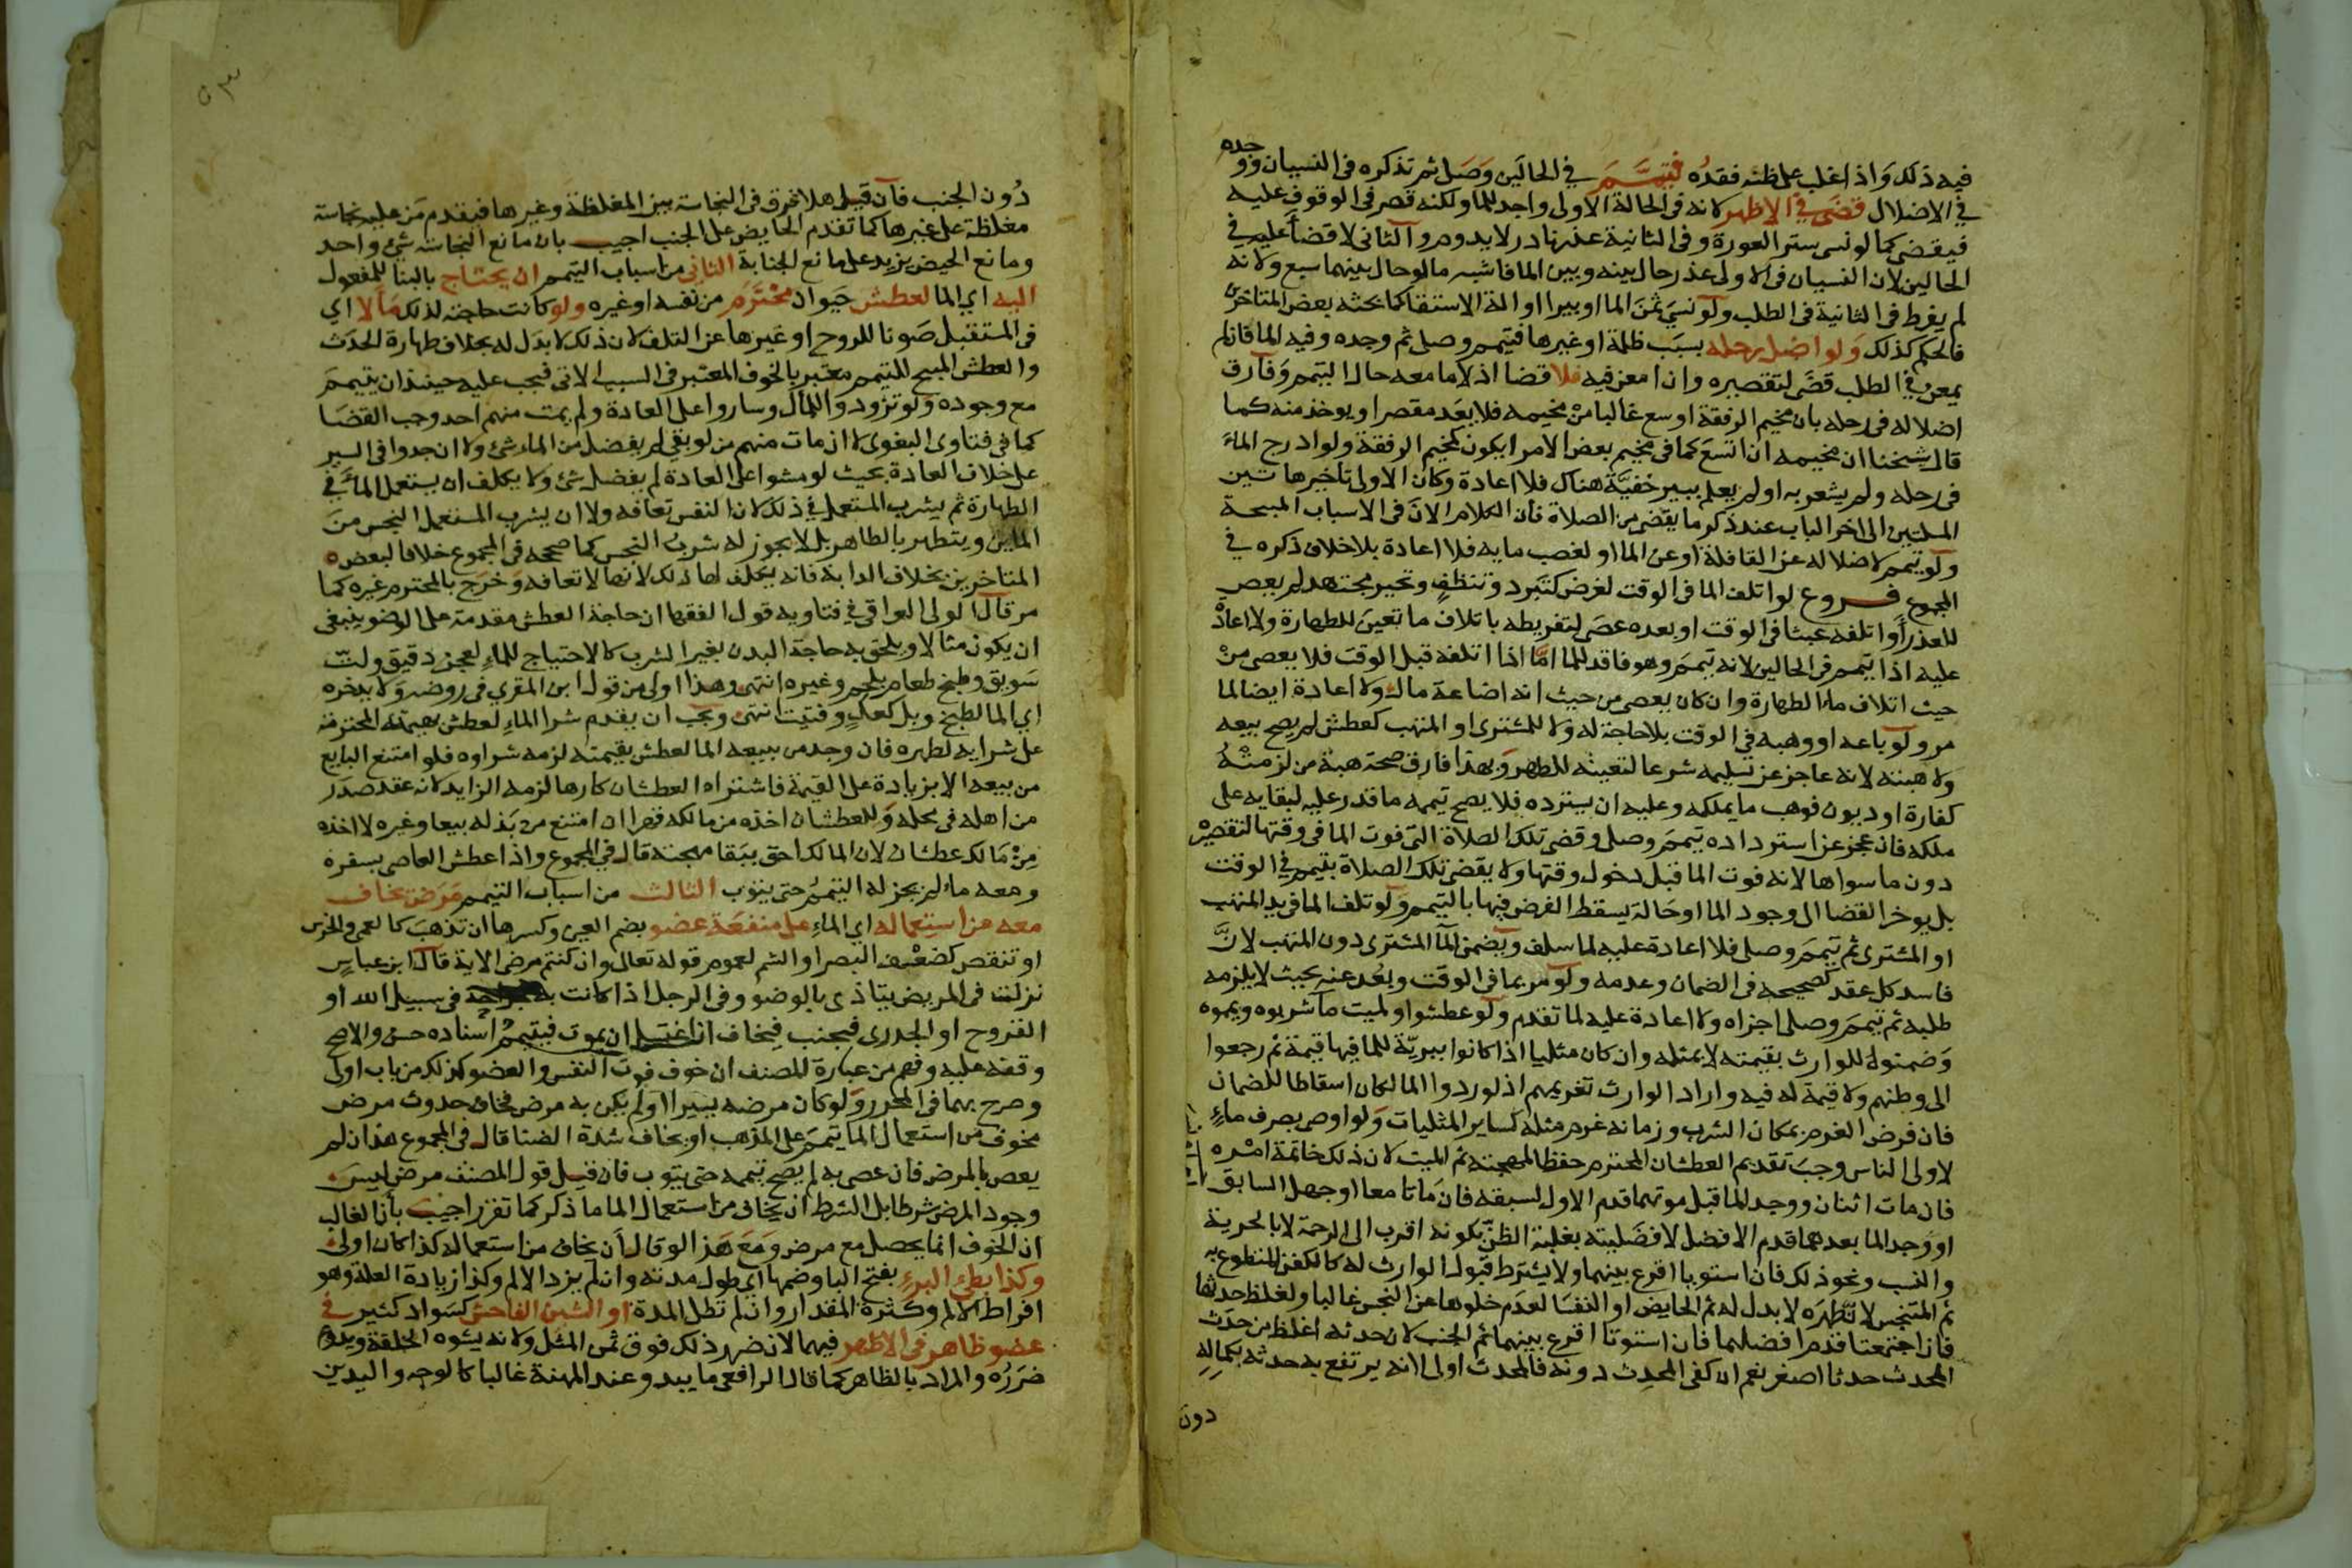 فيه ذلك واذا غلب على ظنه فقده فتيمم في الحالين وصلى ثم تذكره فى النسيان ووجده
في الاضلال قضى في الاظهر لانه فى الحالة الاولى واجد للما ولكنه قصر فى الوقوف عليه
فيقضى كما لو نسى ستر العورة وفى الثانية عذر نادر لا يدوم والثانى لا قضا عليه في
الحالين لان النسيان فى الاولى عذر حال بينه وبين الما فاشبه ما لو حال بينهما سبع ولانه
لم يفرط فى الثانية فى الطلب ولو نسي ثمن الما او بيرا او الة الاستقا كما بحثه بعض المتاخرين
فالحكم كذلك ولو اضل رحله بسبب ظلمة او غيرها فتيمم وصلى ثم وجده وفيه الما فان لم
يمعن في الطلب قضى لتقصيره وان امعن فيه فلا قضا اذ لا ما معه حال التيمم وفارق
اضلاله فى رحله بان مخيم الرفقة اوسع غالبا من مخيمه فلا يعد مقصرا ويوخذ منه كما
قال شيخنا ان مخيمه ان اتسع كما فى مخيم بعض الامرا يكون كمخيم الرفقة ولو ادرج الماء
فى رحله ولم يشعر به او لم يعلم ببير خفية هناك فلا اعادة وكان الاولى تاخير هاتين
المسلتين الى اخر الباب عند ذكر ما يقضى من الصلاة فان الكلام الان فى الاسباب المبيحة
ولو تيمم لاضلاله عن القافلة او عن الما او لغصب مايه فلا اعادة بلا خلاف ذكره في
المجموع فروع لو اتلف الما فى الوقت لغرض كتبرد وتنظف وتحير مجتهد لم يعص
للعذر او اتلفه عبثا فى الوقت او بعده عصى لتفريطه باتلاف ما تعين للطهارة ولا اعادة
عليه اذا تيمم فى الحالين لانه تيمم وهو فاقد للما اما اذا اتلفه قبل الوقت فلا يعصى من
حيث اتلاف ماء الطهارة وان كان يعصى من حيث انه اضاعة مال ولا اعادة ايضا لما
مر ولو باعه او وهبه في الوقت بلا حاجة له ولا للمشترى او المتهب كعطش لم يصح بيعه
ولا هبته لانه عاجز عن تسليمه شرعا لتعينه للطهر وبهذا فارق صحة هبة من لزمته
كفارة او ديون فوهب ما يملكه وعليه ان يسترده فلا يصح تيممه ما قدر عليه لبقايه على
ملكه فان عجز عن استرداده تيمم وصلى وقضى تلك الصلاة التى فوت الما فى وقتها لتقصيره
دون ما سواها لانه فوت الما قبل دخول وقتها ولا يقضى تلك الصلاة بتيمم في الوقت
بل يوخر القضا الى وجود الما او حالة يسقط الفرض فيها بالتيمم ولو تلف الما فى يد المتهب
او المشترى ثم تيمم وصلى فلا اعادة عليه لما سلف ويضمن الما المشترى دون المتهب لان
فاسد كل عقد كصحيحه فى الضمان وعدمه ولو مر بما فى الوقت وبعد عنه بحيث لا يلزمه
طلبه ثم تيمم وصلى اجزاه ولا اعادة عليه لما تقدم ولو عطشوا ولميت ما شربوه ويمموه
وضمنوه للوارث بقيمته لا بمثله وان كان مثليا اذا كانوا ببرية للما فيها قيمة ثم رجعوا
الى وطنهم ولا قيمة له فيه واراد الوارث تغريمهم اذ لو ردوا الما لكان اسقاطا للضمان
فان فرض الغرم بمكان الشرب وزمانه غرم مثله كساير المثليات ولو اوصى بصرف ماء
لاولى الناس وجب تقديم العطشان المحترم حفظا لمهجته ثم الميت لان ذلك خاتمة امره
فان مات اثنان ووجد الما قبل موتهما قدم الاول لسبقه فان ماتا معا او جهل السابق
او وجد الما بعدهما قدم الافضل لافضليته بغلبة الظن بكونه اقرب الى الرحمة لا بالحرية
والنسب ونحو ذلك فان استويا اقرع بينهما ولا يشترط قبول الوارث له كالكفن المتطوع به
ثم المتنجس لان تطهره لا بدل له ثم الحايض او النفسا لعدم خلوها عن النجس غالبا ولغلظ حدثها
فان اجتمعتا قدم افضلهما فان استوتا اقرع بينهما ثم الجنب لان حدثه اغلظ من حدث
المحدث حدثا اصغر نعم ان كفى المحدث دونه فالمحدث اولى لانه يرتفع به حدثه بكماله
دون
٥٣
دون الجنب فان قيل هلا فرق فى النجاسة بين المغلظة وغيرها فيقدم من عليه نجاسة
مغلظة على غيرها كما تقدم الحايض على الجنب اجيب بان مانع النجاسة شئ واحد
ومانع الحيض يزيد على مانع الجنابة الثانى من اسباب التيمم ان يحتاج بالبنا للمفعول
اليه اي الما لعطش حيوان محترم من نفسه او غيره ولو كانت حاجته لذلك مالا اي
فى المستقبل صونا للروح او غيرها عن التلف لان ذلك لا بدل له بخلاف طهارة الحدث
والعطش المبيح للتيمم معتبر بالخوف المعتبر فى السبب الاتى فيجب عليه حينئذ ان يتيمم
مع وجوده ولو تزودوا للمال وساروا على العادة ولم يمت منهم احد وجب القضا
كما فى فتاوى البغوى لا ان مات منهم من لو بقى لم يفضل من الماء شئ ولا ان جدوا فى السير
على خلاف العادة بحيث لو مشوا على العادة لم يفضل شئ ولا يكلف ان يستعمل الماء في
الطهارة ثم يشرب المستعمل في ذلك لان النفس تعافه ولا ان يشرب المستعمل النجس من
الماين ويتطهر بالطاهر بل لا يجوز له شرب النجس كما صححه فى المجموع خلافا لبعض
المتاخرين بخلاف الدابة فانه يكلف لها ذلك لانها لا تعافه وخرج بالمحترم غيره كما
مر قال الولى العراقى في فتاويه قول الفقها ان حاجة العطش مقدمة على الوضو ينبغى
ان يكون مثالا ويلحق به حاجة البدن بغير الشرب كالاحتياج للماء لعجن دقيق ولت
سويق وطبخ طعام بلحم وغيره انتهى وهذا اولى من قول ابن المقري فى روضه ولا يدخره
اي الما لطبخ وبل كعك وفتيت انتهى ويجب ان يقدم شرا الماء لعطش بهيمته المحترمة
على شرايه لطهره فان وجد من يبيعه الما لعطش بقيمته لزمه شراوه فلو امتنع البايع
من بيعه الا بزيادة على القيمة فاشتراه العطشان كارها لزمه الزايد لانه عقد صدر
من اهله فى محله وللعطشان اخذه من مالكه قهرا ان امتنع من بذله بيعا وغيره لا اخذه
من مالك عطشان لان المالك احق ببقا مهجته قال في المجموع واذا عطش العاصى بسفره
ومعه ماء لم يجز له التيمم حتى يتوب الثالث من اسباب التيمم مرض يخاف
معه من استعماله اي الماء على منفعة عضو بضم العين وكسرها ان تذهب كالعمى والخرس
او تنقص كضعف البصر او الشم لعموم قوله تعالى وان كنتم مرضى الاية قال ابن عباس
نزلت فى المريض يتاذى بالوضوء وفى الرجل اذا كانت به جراحة فى سبيل الله او
القروح او الجدرى فيجنب فيخاف ان اغتسل ان يموت فيتيمم اسناده حسن والاصح
وقفه عليه وفهم من عبارة المصنف ان خوف فوت النفس والعضو كذلك من باب اولى
وصرح بهما فى المحرر ولو كان مرضه يسيرا او لم يكن به مرض فخاف حدوث مرض
مخوف من استعمال الما تيمم على المذهب او يخاف شدة الضنا قال فى المجموع هذا ان لم
يعص بالمرض فان عصى به لم يصح تيممه حتى يتوب فان قيل قول المصنف مرض ليس
وجود المرض شرطا بل الشرط ان يخاف من استعمال الما ما ذكر كما تقرر اجيب بان الغالب
ان الخوف انما يحصل مع مرض ومع هذا لو قال ان يخاف من استعماله كذا كان اولى
وكذا بطئ البرء بفتح البا وضمها اى طول مدته وان لم يزد الالم وكذا زيادة العلة وهو
افراط الالم وكثرة المقدار وان لم تطل المدة او الشين الفاحش كسواد كثير في
عضو ظاهر فى الاظهر فيهما لان ضرر ذلك فوق ثمن المثل ولانه يشوه الخلقة ويدوم
ضرره والمراد بالظاهر كما قال الرافعى ما يبدو عند المهنة غالبا كالوجه واليدين